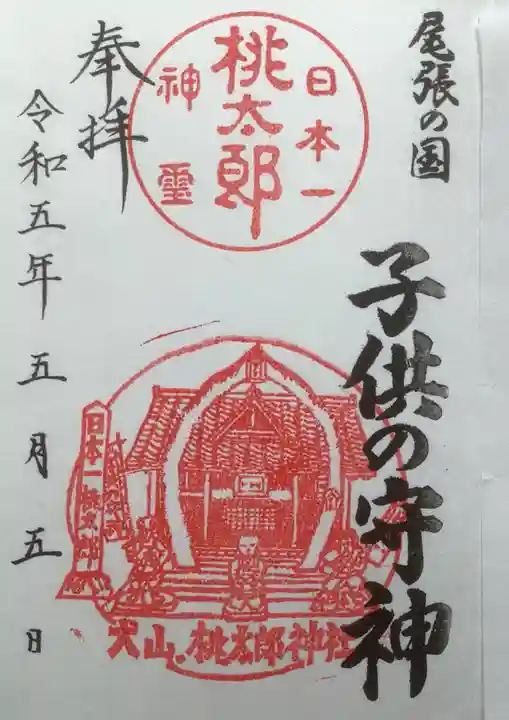 尾張の国
子供の守神
日本一
桃太郎
神霊
奉拝
令和五年五月五日
日本一
犬山、桃太郎神社